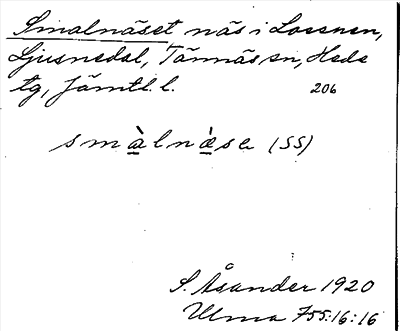 Smalnäset näs i Lossnen,
Ljusnedal, Tännäs sn, Heds
tg, Jämtl. l. 206
smàlnǽsa (SS)
S. Åsander 1920
Ulma 755:16:16